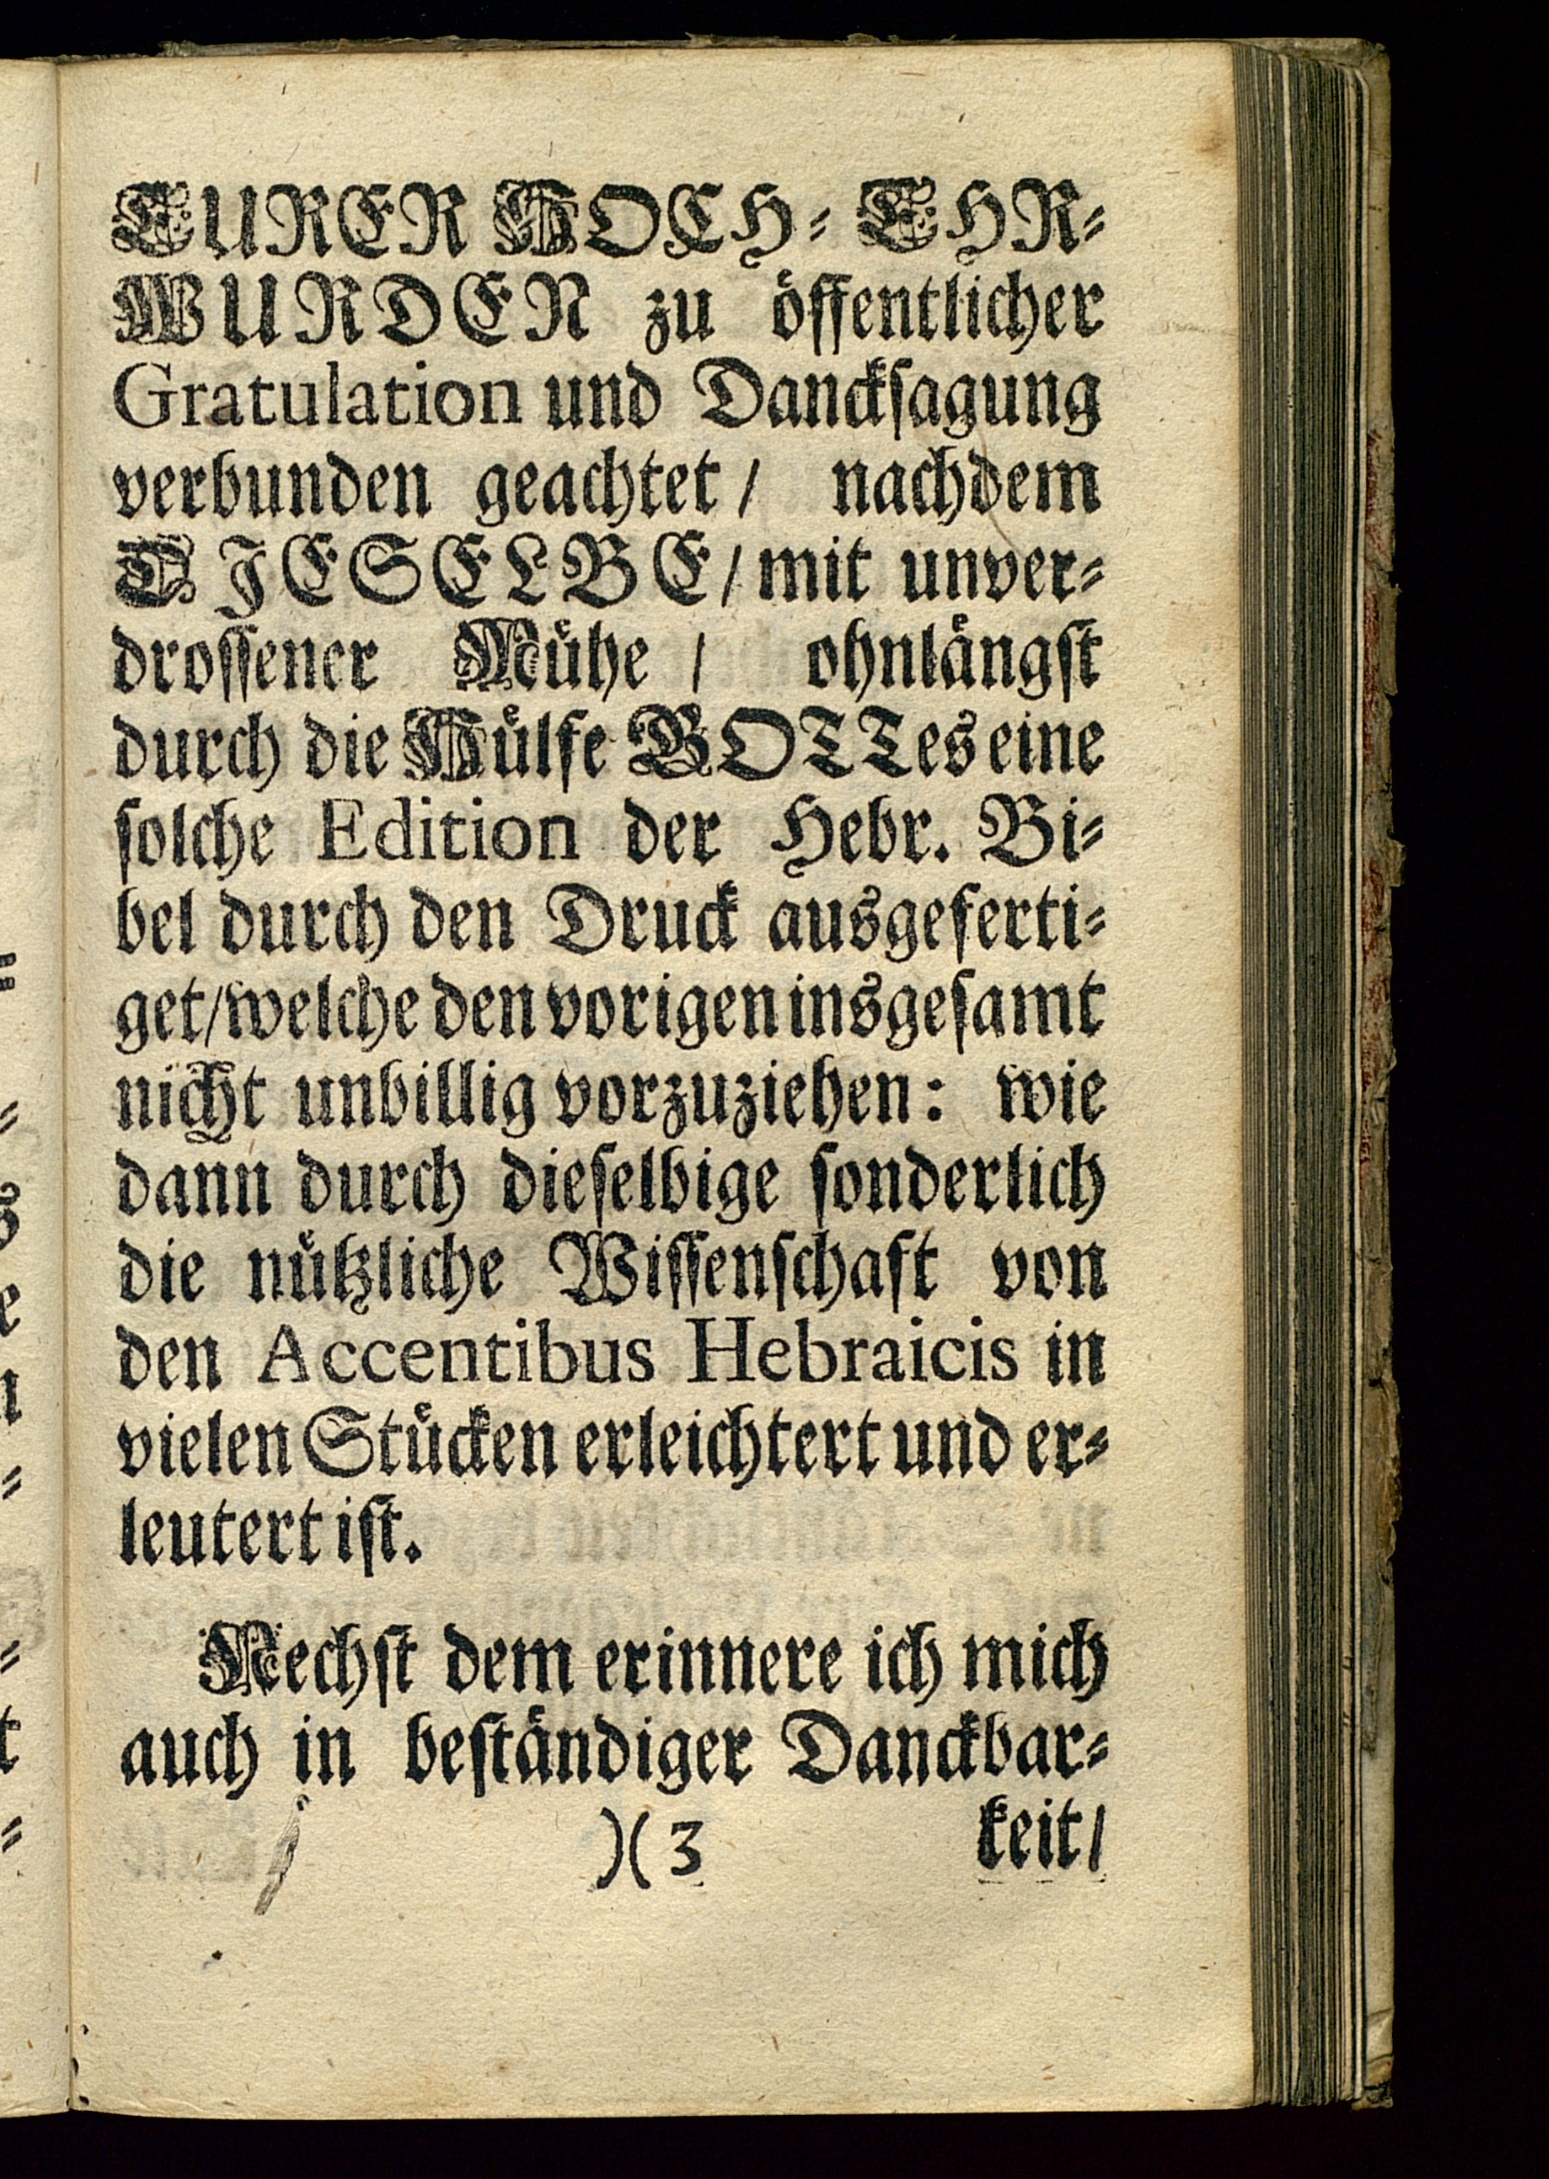 EURER HOCH-EHR-
WURDEN zu öffentlicher
Gratulation und Danckſagung
verbunden geachtet/ nachdem
DIESELBE/ mit unver-
droſſener Mühe/ ohnlängſt
durch die Hülfe GOTTes eine
ſolche Edition der Hebr. Bi-
bel durch den Druck ausgeferti-
get/welche den vorigen insgeſamt
nicht unbillig vorzuziehen: wie
dann durch dieſelbige ſonderlich
die nützliche Wiſſenſchaft von
den Accentibus Hebraicis in
vielen Stücken erleichtert und er-
leutert iſt.
Nechſt dem erinnere ich mich
auch in beſtändiger Danckbar-
)(3 keit/